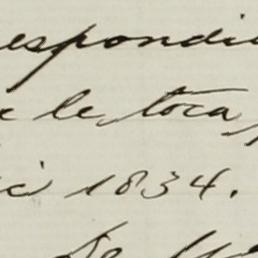 espondi
le toca,
1834.